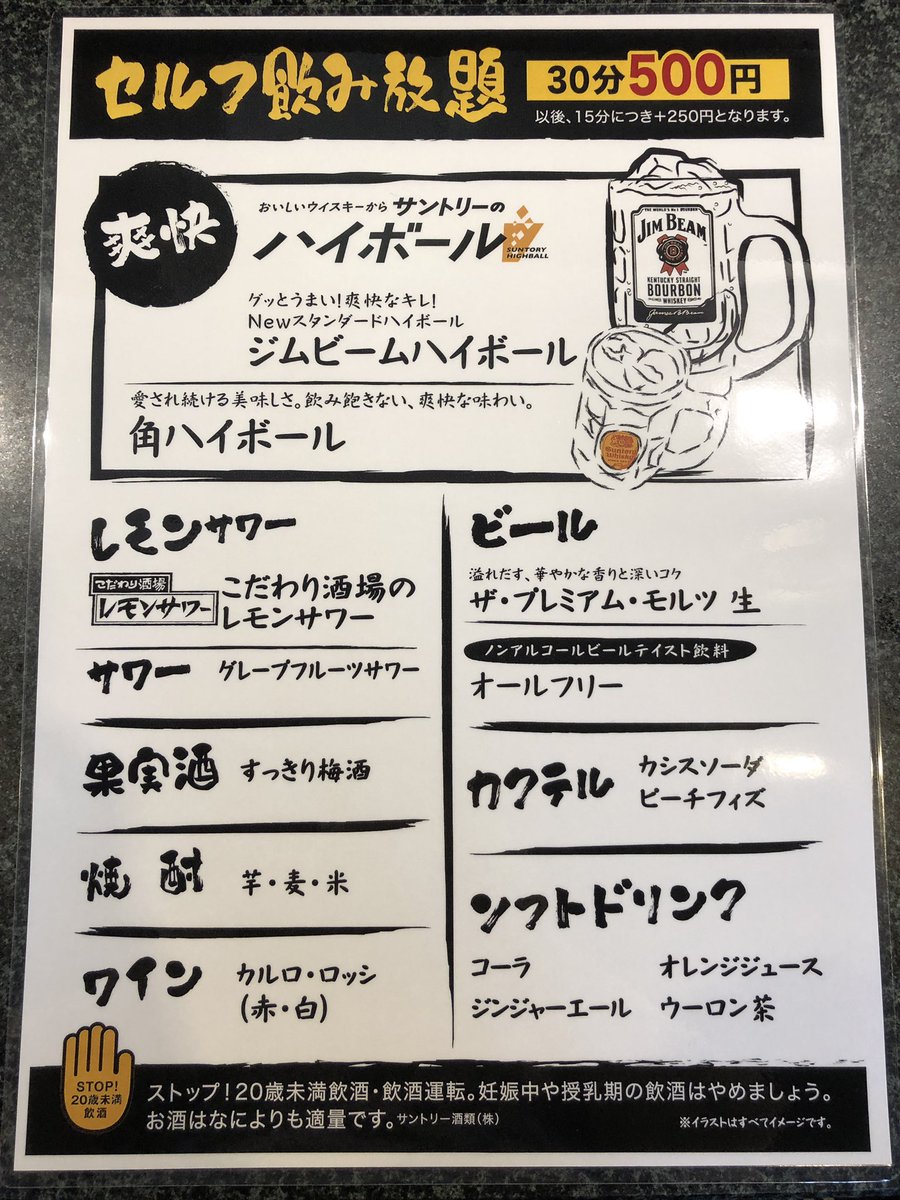 セルフ飲み放題
30分500円
以後、15分につき+250円となります。
爽快
おいしいウイスキーから サントリーの
ハイボール
SUNTORY
HIGHBALL
THE WORLD'S No.1 BOURBON
JIM BEAM
KENTUCKY STRAIGHT
BOURBON
WHISKEY
グッとうまい!爽快なキレ!
Newスタンダードハイボール
ジムビームハイボール
愛され続ける美味しさ。飲み飽きない、爽快な味わい。
角ハイボール
Suntory
Whisky
レモンサワー
こだわり酒場
レモンサワー
こだわり酒場の
レモンサワー
サワー グレープフルーツサワー
果実酒 すっきり梅酒
焼酎 芋・麦・米
ワイン カルロ・ロッシ
(赤・白)
ビール
溢れだす、華やかな香りと深いコク
ザ・プレミアム・モルツ 生
ノンアルコールビールテイスト飲料
オールフリー
カクテル カシスソーダ
ピーチフィズ
ソフトドリンク
コーラ オレンジジュース
ジンジャーエール ウーロン茶
STOP!
20歳未満
飲酒
ストップ!20歳未満飲酒・飲酒運転。妊娠中や授乳期の飲酒はやめましょう。
お酒はなによりも適量です。サントリー酒類(株)
※イラストはすべてイメージです。